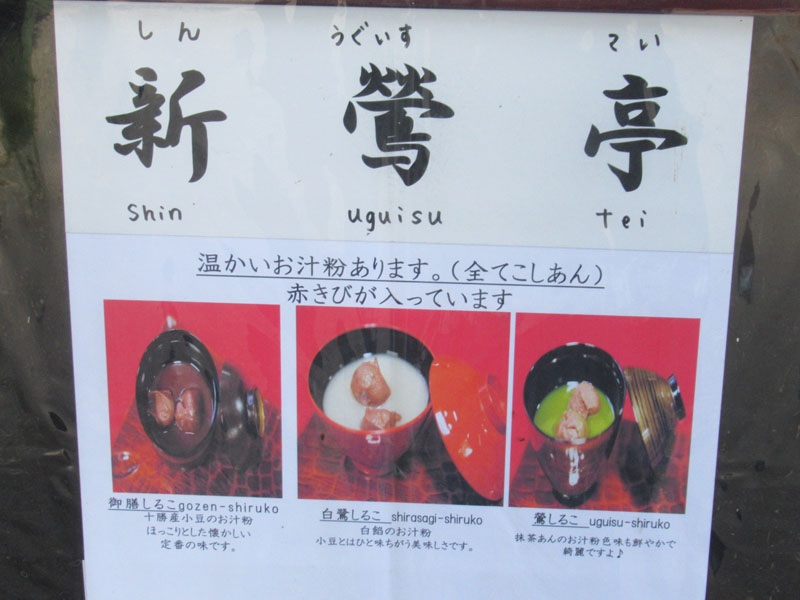 しん うぐいす てい
新 鶯 亭
Shin uguisu tei
温かいお汁粉あります。(全てこしあん)
赤きびが入っています
御膳しるこgozen-shiruko
十勝産小豆のお汁粉
ほっこりとした懐かしい
定番の味です。
白鷺しるこ shirasagi-shiruko
白餡のお汁粉
小豆とはひと味ちがう美味しさです。
鶯しるこ uguisu-shiruko
抹茶あんのお汁粉色味も鮮やかで
綺麗ですよ♪